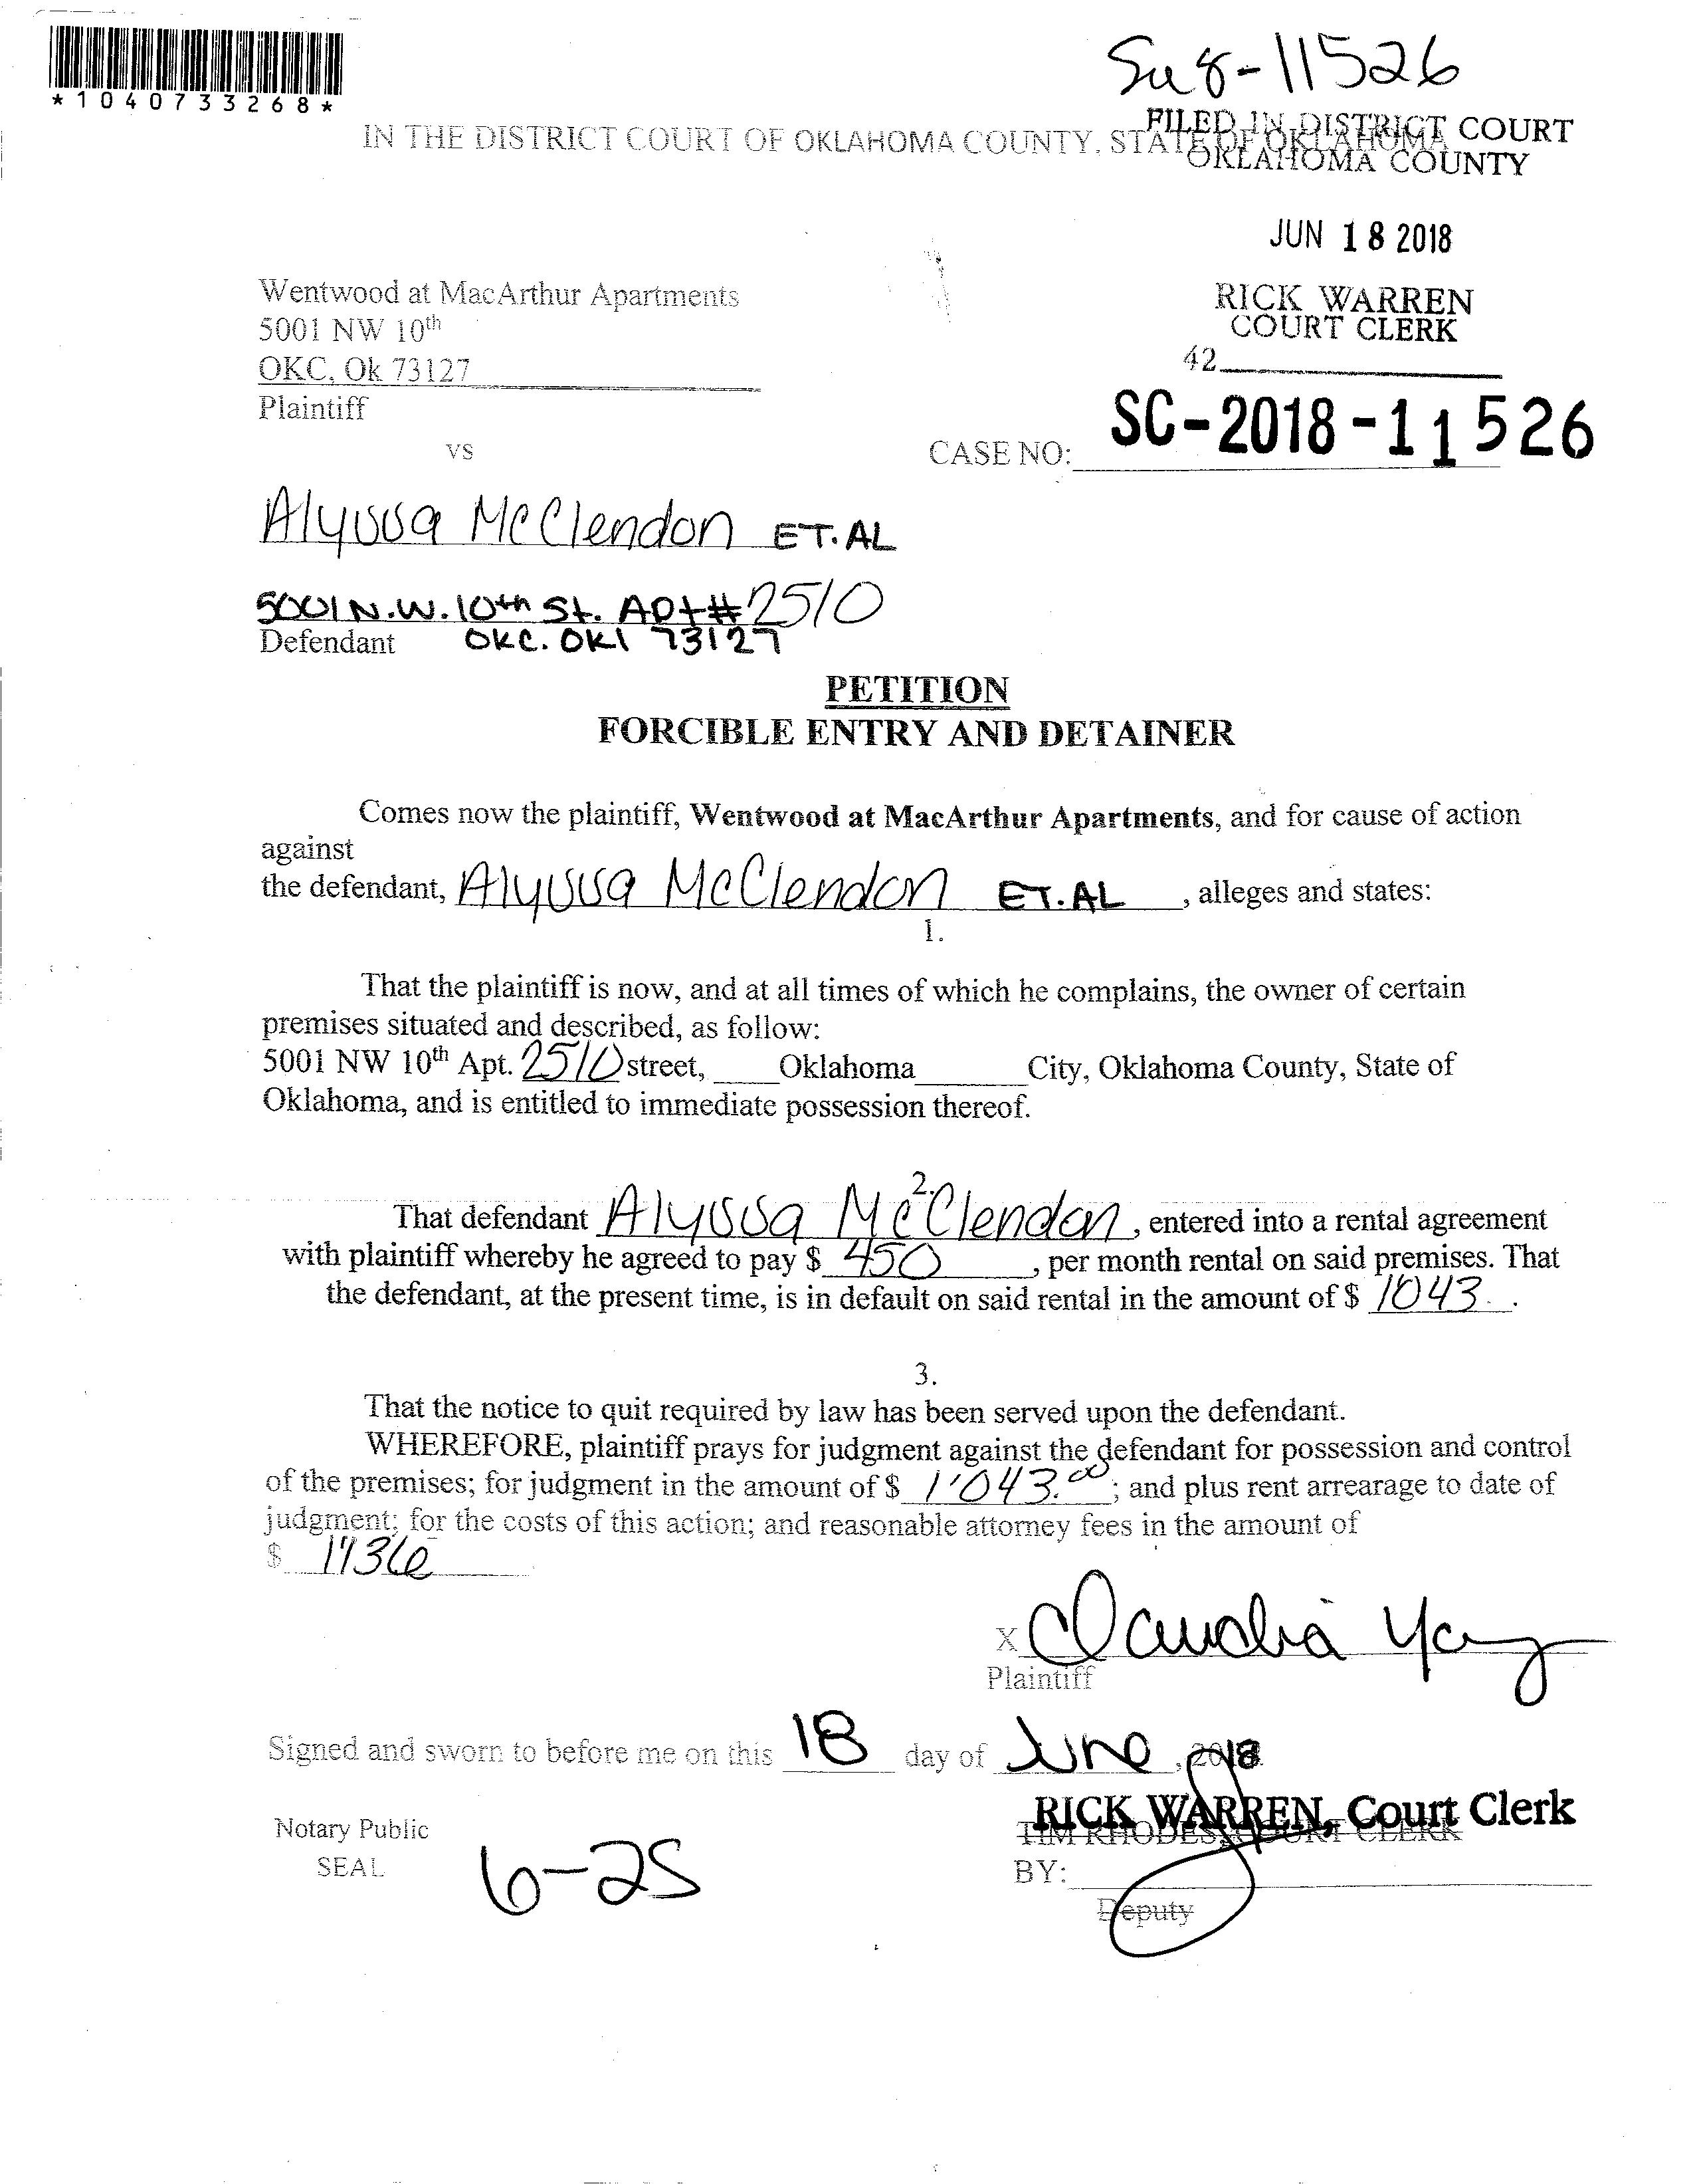 *1040733268*
Su 8-11526
IN THE DISTRICT COURT OF OKLAHOMA COUNTY, STATE OF OKLAHOMA
FILED IN DISTRICT COURT
OKLAHOMA COUNTY
JUN 18 2018
Wentwood at MacArthur Apartments
5001 NW 10th
OKC, Ok 73127
Plaintiff
RICK WARREN
COURT CLERK
42
vs
CASE NO: SC-2018-11526
Alyssa McClendon ET.AL
5001 N.W. 10th St. Apt# 2510
Defendant OKC. OKl 73127
PETITION
FORCIBLE ENTRY AND DETAINER
Comes now the plaintiff, Wentwood at MacArthur Apartments, and for cause of action
against
the defendant, Alyssa McClendon ET.AL , alleges and states:
1.
That the plaintiff is now, and at all times of which he complains, the owner of certain
premises situated and described, as follow:
5001 NW 10th Apt. 2510 street, Oklahoma City, Oklahoma County, State of
Oklahoma, and is entitled to immediate possession thereof.
2.
That defendant Alyssa McClendon , entered into a rental agreement
with plaintiff whereby he agreed to pay $ 450 , per month rental on said premises. That
the defendant, at the present time, is in default on said rental in the amount of $ 1043 .
3.
That the notice to quit required by law has been served upon the defendant.
WHEREFORE, plaintiff prays for judgment against the defendant for possession and control
of the premises; for judgment in the amount of $ 1'043.00 ; and plus rent arrearage to date of
judgment; for the costs of this action; and reasonable attorney fees in the amount of
$
x Claudia
Plaintiff
Signed and sworn to before me on this 18 day of June , 2018
RICK WARREN, Court Clerk
TIM RHODES, COURT CLERK
Notary Public
SEAL
6-25
BY:
Deputy